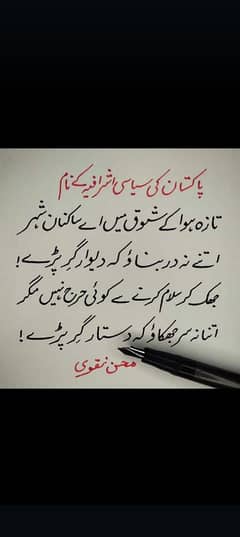 پاکستان کی سیاسی اشرافیہ کے نام
تازہ ہوا کے شوق میں اے ساکنان شہر
اتنے نہ در بناؤ کہ دیوار گر پڑے!
جھک کر سلام کرنے سے کوئی حرج نہیں مگر
اتنا نہ سر جھکاؤ کہ دستار گر پڑے!
محسن نقوی